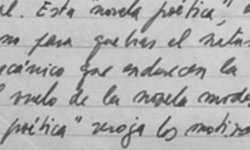 al. Esta "novela poética",
no para quebrar el
ecánico que endurecen la
l vuelo de la novela mode
poética" recoja los motivo